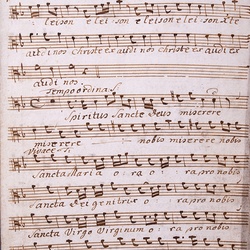 leison e lei son e leison e leison Xte
audi nos Christe exaudi nos Christe exaudi ex
audi nos.
Tempo ordina:
Spiritus Sancte Deus miserere
miserere nobis miserere nobis
Vivace
Sancta Maria o ra o ra pro nobis
Sancta Dei genitrix o ra pro nobis
Sancta Virgo Virginum o ra pro nobis